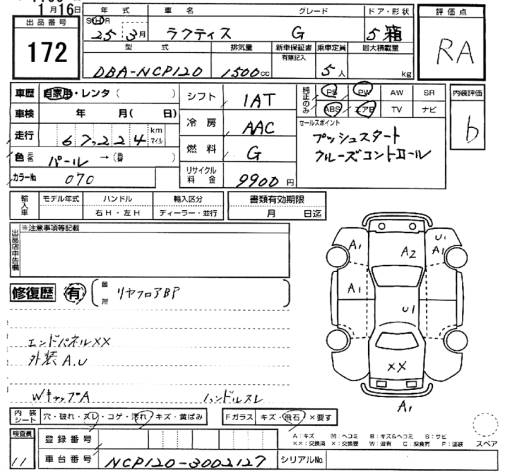 月16日
出品番号 年式 車名 グレード ドア・形状 評価点
172 25年 3月 ラフティス G 5 箱 RA
型式 排気量 新車保証書 乗車定員 最大積載量
有限記入
DBA-NCP120 1500cc 5人 kg
車歴 自家用・レンタ( ) シフト 1AT 純正のみ PS PW AW SR 内装評価
車検 年 月( 日) 冷房 AAC ABS エアB TV ナビ b
走行 67,224 km マイル 燃料 G セールスポイント
プッシュスタート
クルーズコントロール
色 パール →( )
カラー№ 070 リサイクル料金 9900円
輸入車 モデル年式 ハンドル 輸入区分 書類有効期限
右H・左H ディーラー・並行 月 日迄
出品店申告欄 ※注意事項等記載
修復歴 有 箇所 リヤフロアBP
A1 A2 U1 A1
A1 A1
U1
XX
A1
エンドパネルXX
外装A.U
WキャップA ハンドルスレ
内装シート 穴・破れ・スレ・コゲ・汚れ・キズ・黄ばみ Fガラス キズ・飛石・×要す
検査員 11 登録番号
車台番号 NCP120-3002127 シリアルNo.
A:キズ M:ヘコミ B:キズ&ヘコミ S:サビ
スペア